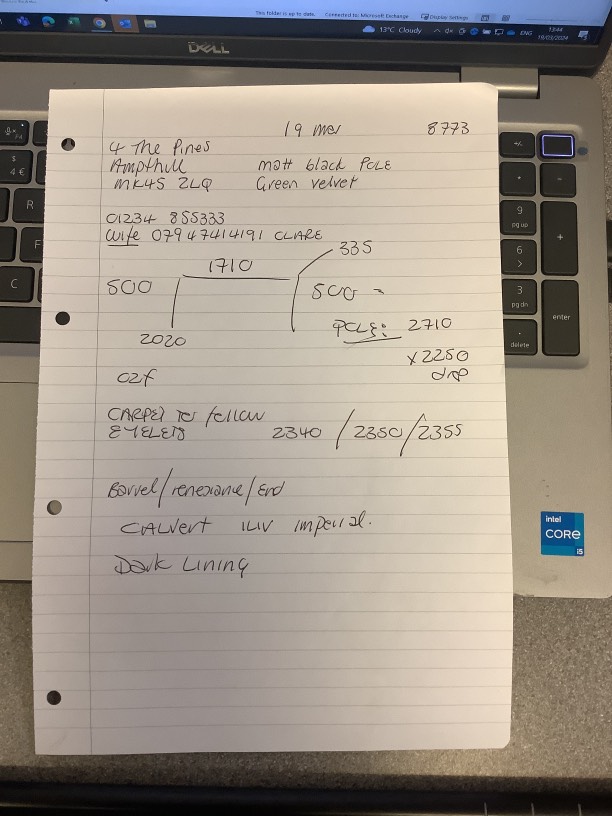 This folder is up to date. Connected to: Microsoft Exchange Display Settings
13°C Cloudy ENG 13:44
18/03/2024
DELL
19 mar 8773
4 The Pines
Ampthill matt black POLE
MK45 2LQ Green velvet
01234 855333
Wife 07947414191 CLARE
335
1710
500 500
POLE: 2710
2020
x2250
drp
CARPET To follow
EYELETS 2340 / 2350 / 2355
Barrel/ /End
CALVERT ILIV imperial.
Dark LINING
F4
$
4 €
R
F
C
+/-
*
-
9
pg up
+
6
>
3
pg dn
enter
.
delete
intel
CORE
i5